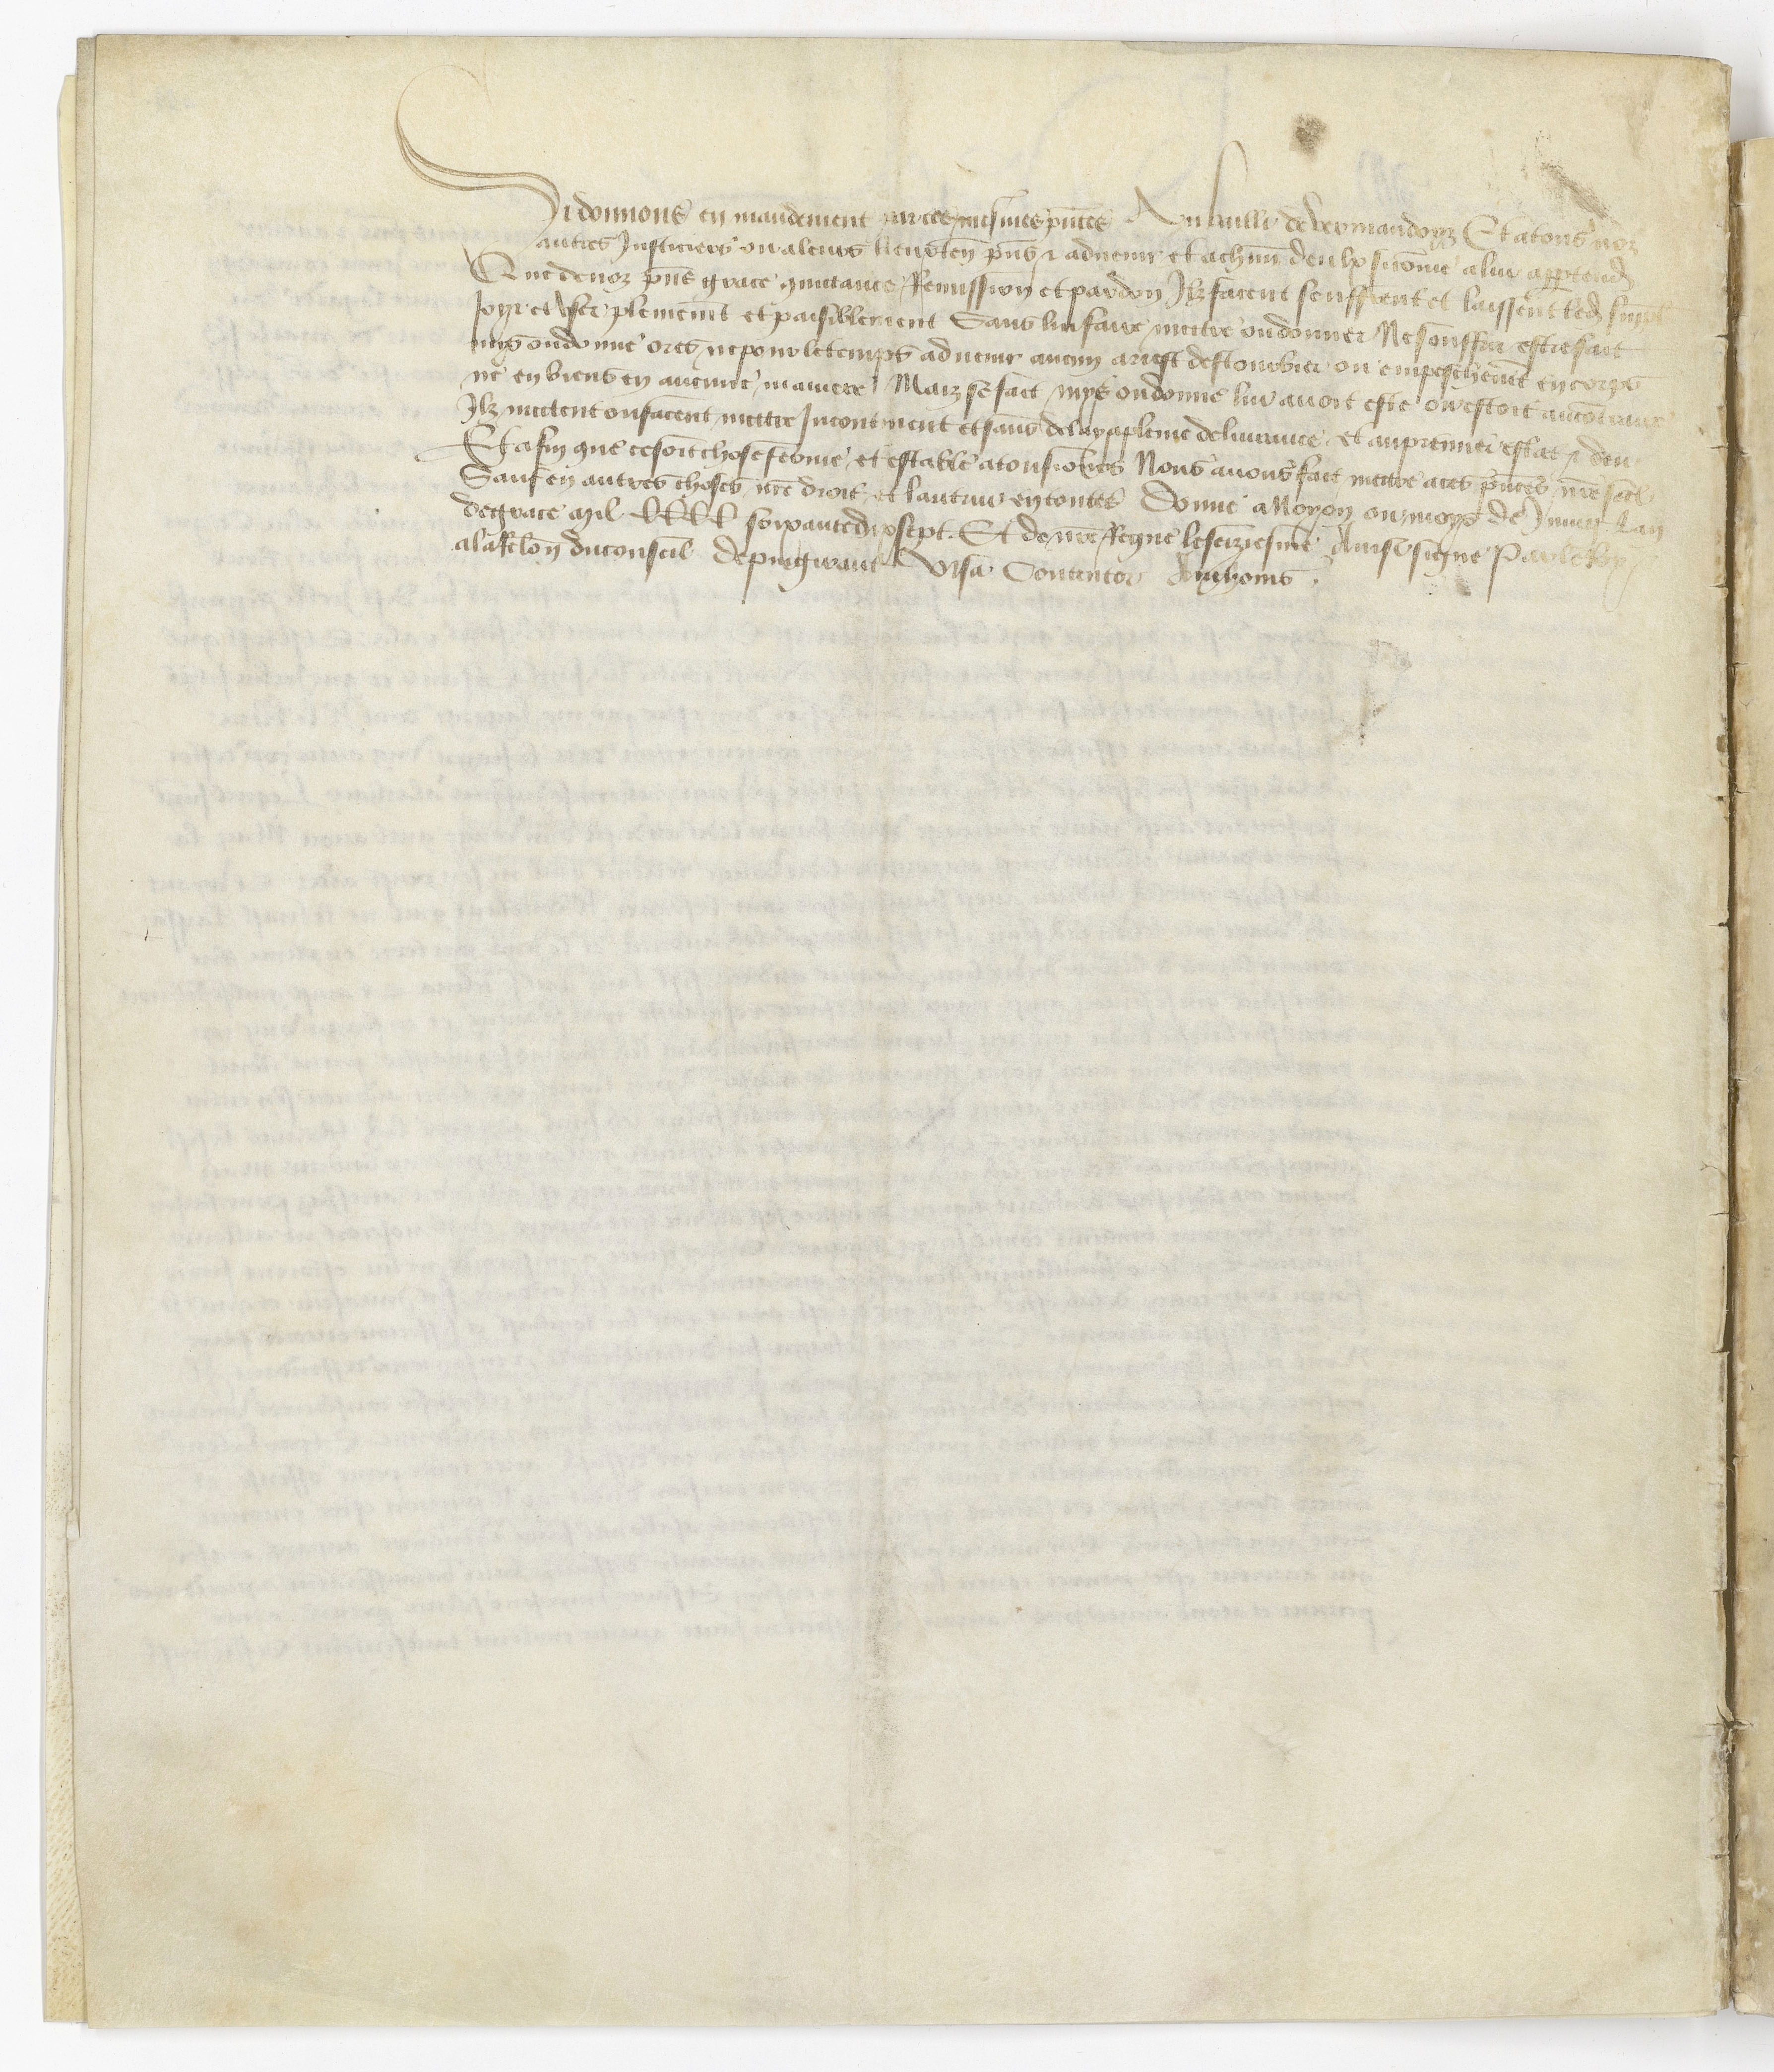 Si donnons en mandement par ces mesmes pñtes Au bailli de Vermandoys Et a tous noz
autres Justiciers ou a leurs lieuxten̄ pñs & aduenir et a chūn deulx si cōme a luy appartiendr̄
Que de noz pñs grace quictance Remission et pardon Ilz facent seuffrent et laissent led suppl
Joyr et vser plenemēt et paisiblement Sans luy faire mettre ou donner Ne souffrir estre fait
mys ou donne ores ne pour le temps aduenir aucun arrest destourbier ou empeschemēt en corps
ne en biens en aucune maniere Maiz se fait mys ou donne luy auoit este ou estoit au contraire
Ilz mettent ou facent mettre Incontinent et sans delay a plene deliurance et au premier estat & deu
Et afin que ce soit chose ferme et estable a tousiours Nous auons fait mettre a ces pñtes nr̄e seel
Sauf en autres choses nr̄e droit et lautruy en toutes Donne a Noyon ou moys de Juing Lan
de grace mil CCCC soixante dix sept. Et de nr̄e Regne le seiziesme Ainsi signe Par le Roy
a la Relōn du conseil Depuigiraut Visa Contentor